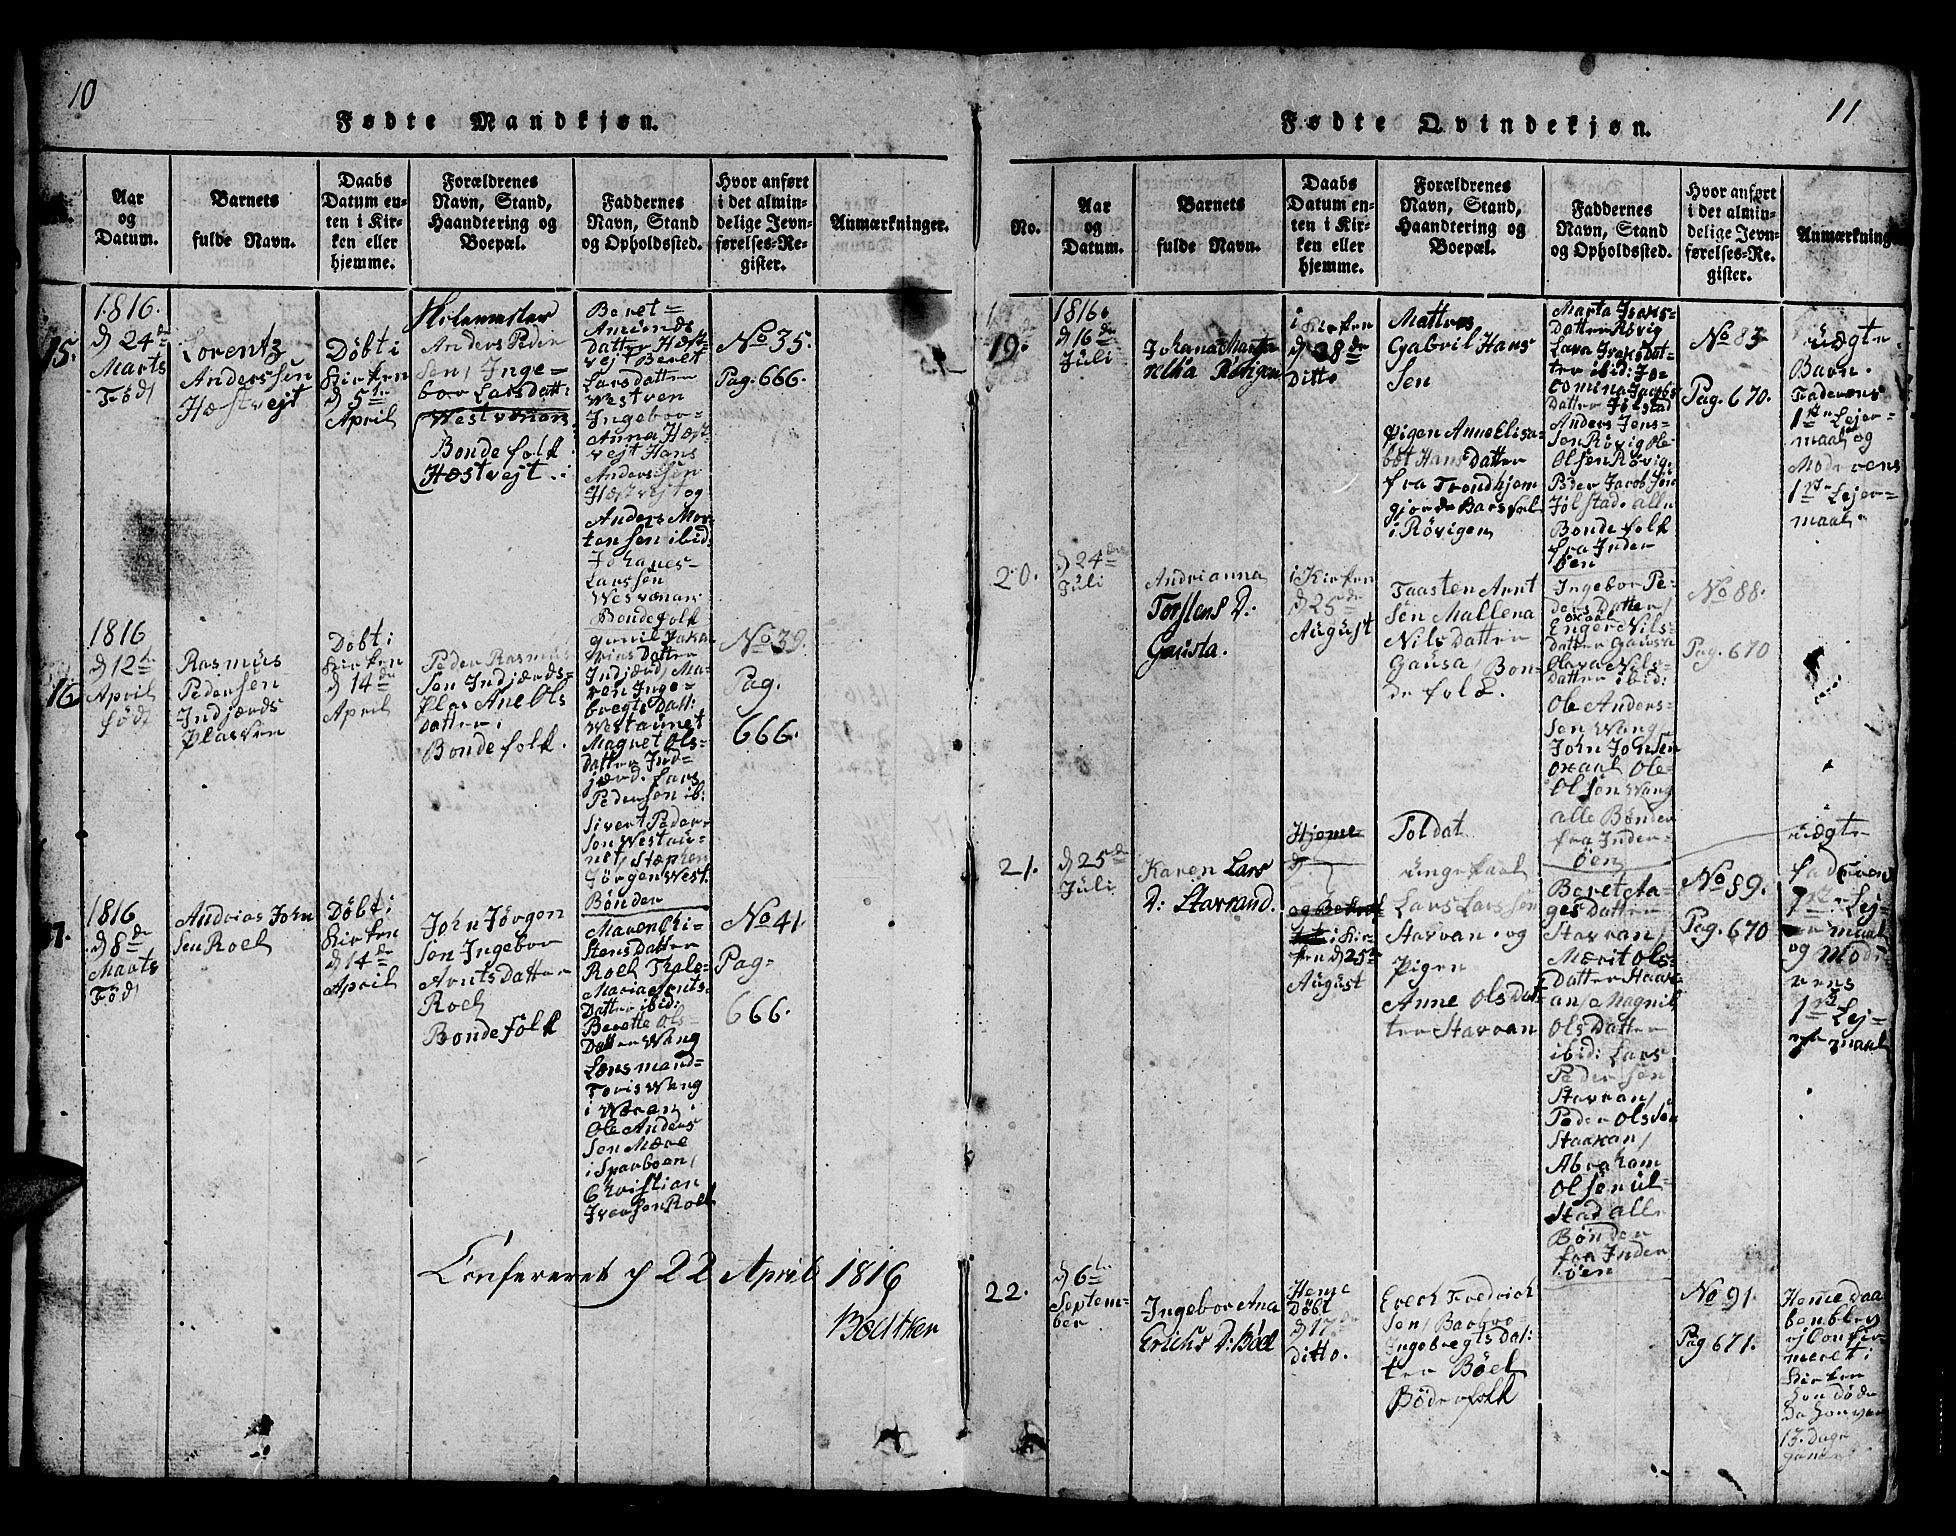 10
Fødte Mandkjøn.
Aar
og
Datum.
Barnets
fulde Navn.
Daabs
Datum en-
ten i Kir-
ken eller
hjemme.
Forældrenes
Navn, Stand,
Haandtering og
Boepæl.
Faddernes
Navn, Stand
og Opholdssted.
Hvor anført
i det almin-
delige Jevn-
førelses-Re-
gister.
Anmærkninger.
15.
1816.
d 24de
Marts
Født
Lorentz
Anderssen
Hæstvejt
Døbt i
Kirken
d 5te
April
Anders Peder
sen, Inge-
bor Larsdatt:
Westvenan
Bonde folk
Hæstvejt.
Beret
Amunds
datter Hæst-
vejt Beret
Larsdatter
Westven
Ingebor
Anna Hæst-
vejt Hans
Anderssen
Hæstvejt og
Anders Mor-
tensen ibid:
Johanes
Larssen
Westvenan
Bondefolk
No 35.
Pag. 666.
16
1816
d 12te
April
født
Rasmus
Pedersen
Indjærds
plassen
Døbt i
Kirken
d 14de
April
Peder Rasmus
sen Indjærds-
plas Ane Ols
datter
Bonde folk.
Indjærd, Ma-
ren Inge-
bregts Datt:
Westaunet
Magnet Ols-
datter Ind-
jærd. Lars
Pedersen ib:
Sivert Peder-
sen Westau-
net, Stephen
Jørgen West.
Bønder
No 39.
Pag.
666.
1816
d 8de
Marts
Født
Andrias John
sen Roel
Døbt i
Kirken
d 14de
April
John Jørgen
sen Ingebor
Arntsdatter
Roel
Bondefolk
Maren Chri-
stensdatter
Roel
Maria
Datter ibid:
Berette Ols-
Datter Wang
Lensmand
Toris Wang
i Wæren
Ole Anders
sen Mære
i Sparboen,
Christian
Iversen Roel
No 41.
Pag-
666.
Confereret d 22 April 1816
Bødtker
11
Fødte Qvindekjøn.
No.
Aar
og
Datum.
Barnets
fulde Navn.
Daabs
Datum en-
ten i Kir-
ken eller
hjemme.
Forældrenes
Navn, Stand,
Haandtering og
Boepæl.
Faddernes
Navn, Stand
og Opholdssted.
Hvor anført
i det almin-
delige Jevn-
førelses-Re-
gister.
Anmærkning
19.
1816.
d 16de
Juli
Johana Marta
Røvigen
i Kirken
d 28de
Ditto
Gabril Hans
Sen
Pigen Anne Elisa-
bet Hansdatter
fra Trondhjem
gjorde Barsføl
i Røvigen
Marta Isaks-
Datter Røvig
Lava Isaksdat-
ter ibid: Ja-
comina Jacobs
Datter Jølstad
Anders Jens-
sen Røvig Ole
Olsen Røvig.
Peder Jacobsen
Jølstad. alle
Bonde folk
fra Inder
øen
No 83
Pag. 670.
uægte
Barn.
Faderens
1ste Lejer-
maal og
Moderens
1ste Lejer-
maal.
20.
d 24de
Juli
Andrianna
Torstens D:
Gausta.
i Kirken
d 25de
August
Taasten Arnt
sen Mallena
Nilsdatter
Gausa, Bon-
de folk.
Ingebor Pe-
ders Datter
oxaal
Enger Nils-
datter Gausa
Olava Nils-
datter ibid:
Ole Anders-
sen Wang
John Johnsen
oxaal Ole
Olsen Wang
alle Bønder
fra Inder-
øen
No 88.
Pag. 670
21.
d 25de
Juli
Karen Lars
D: Starvand.
Hjeme
d
i Kir-
ken d 25de
August
Soldat
ungekaal
Lars Larssen
Starvan. og
Pigen
Anne Olsdat-
ter Starvan
Beret Aa-
ges Datter
Starvan,
Marit Ols-
Datter Haar-
an, Magnil
Ols Datter
ibid: Lars
Peder sen
Starvan,
Peder Olssen
Starvan,
Abraham
Olsen Ul-
Stad alle
Bønder
fra Inder
øen
No 89.
Pag. 670
uægte
faderens
1ste Lej-
er maal
og Mode
rens
1ste Lej-
er maal
22.
d 6te
Septem-
ber
Ingebor Ana
Erichs D: Bøel
Heme
Døbt
d 17de
ditto.
Erech Fredrich
sen, Barbro
Ingebregtsdat:
ter Bøel
Bøderfolk
No 91.
Pag 671.
Heme daa
ben blev
ej Confir-
meret i
Kirken
han døde
da han var
13. dage
gamel